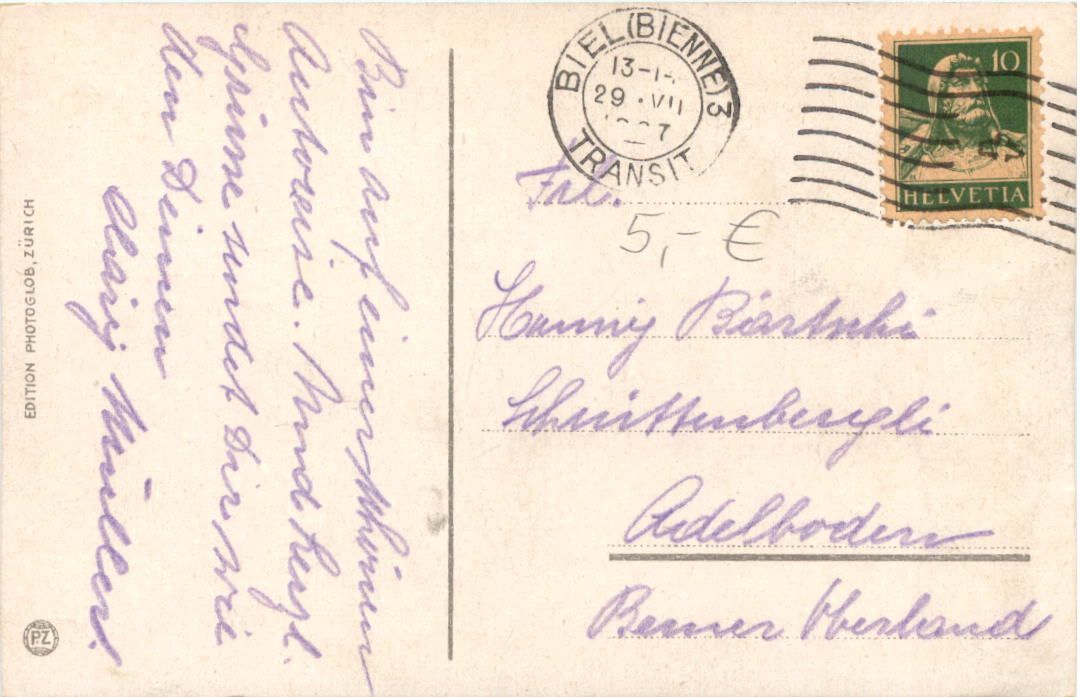 Bin auf einer schönen
Autoreise. Und herzl.
Grüsse sendet Dir, wie
den Deinen
Müller.
EDITION PHOTOGLOB, ZÜRICH
PZ
BIEL (BIENNE) 3
13-1
29.VII
TRANSIT
10
HELVETIA
Frl.
5,- €
Hanny Bärtschi
Schnittenbergli
Adelboden
Berner Oberland